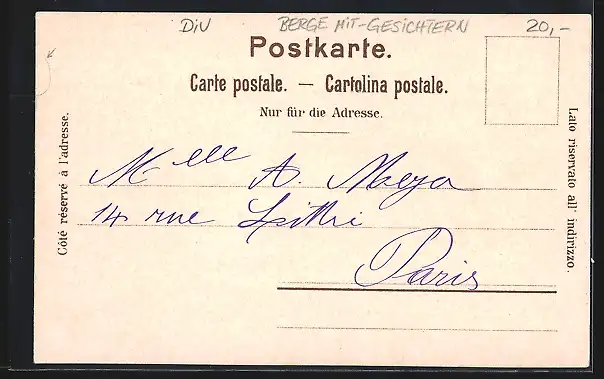 DiV BERGE MIT-GESICHTERN 20,-
Postkarte.
Carte postale. — Cartolina postale.
Nur für die Adresse.
Côté réservé à l'adresse.
Lato riservato all' indirizzo.
Melle A. Meya
14 rue
Paris